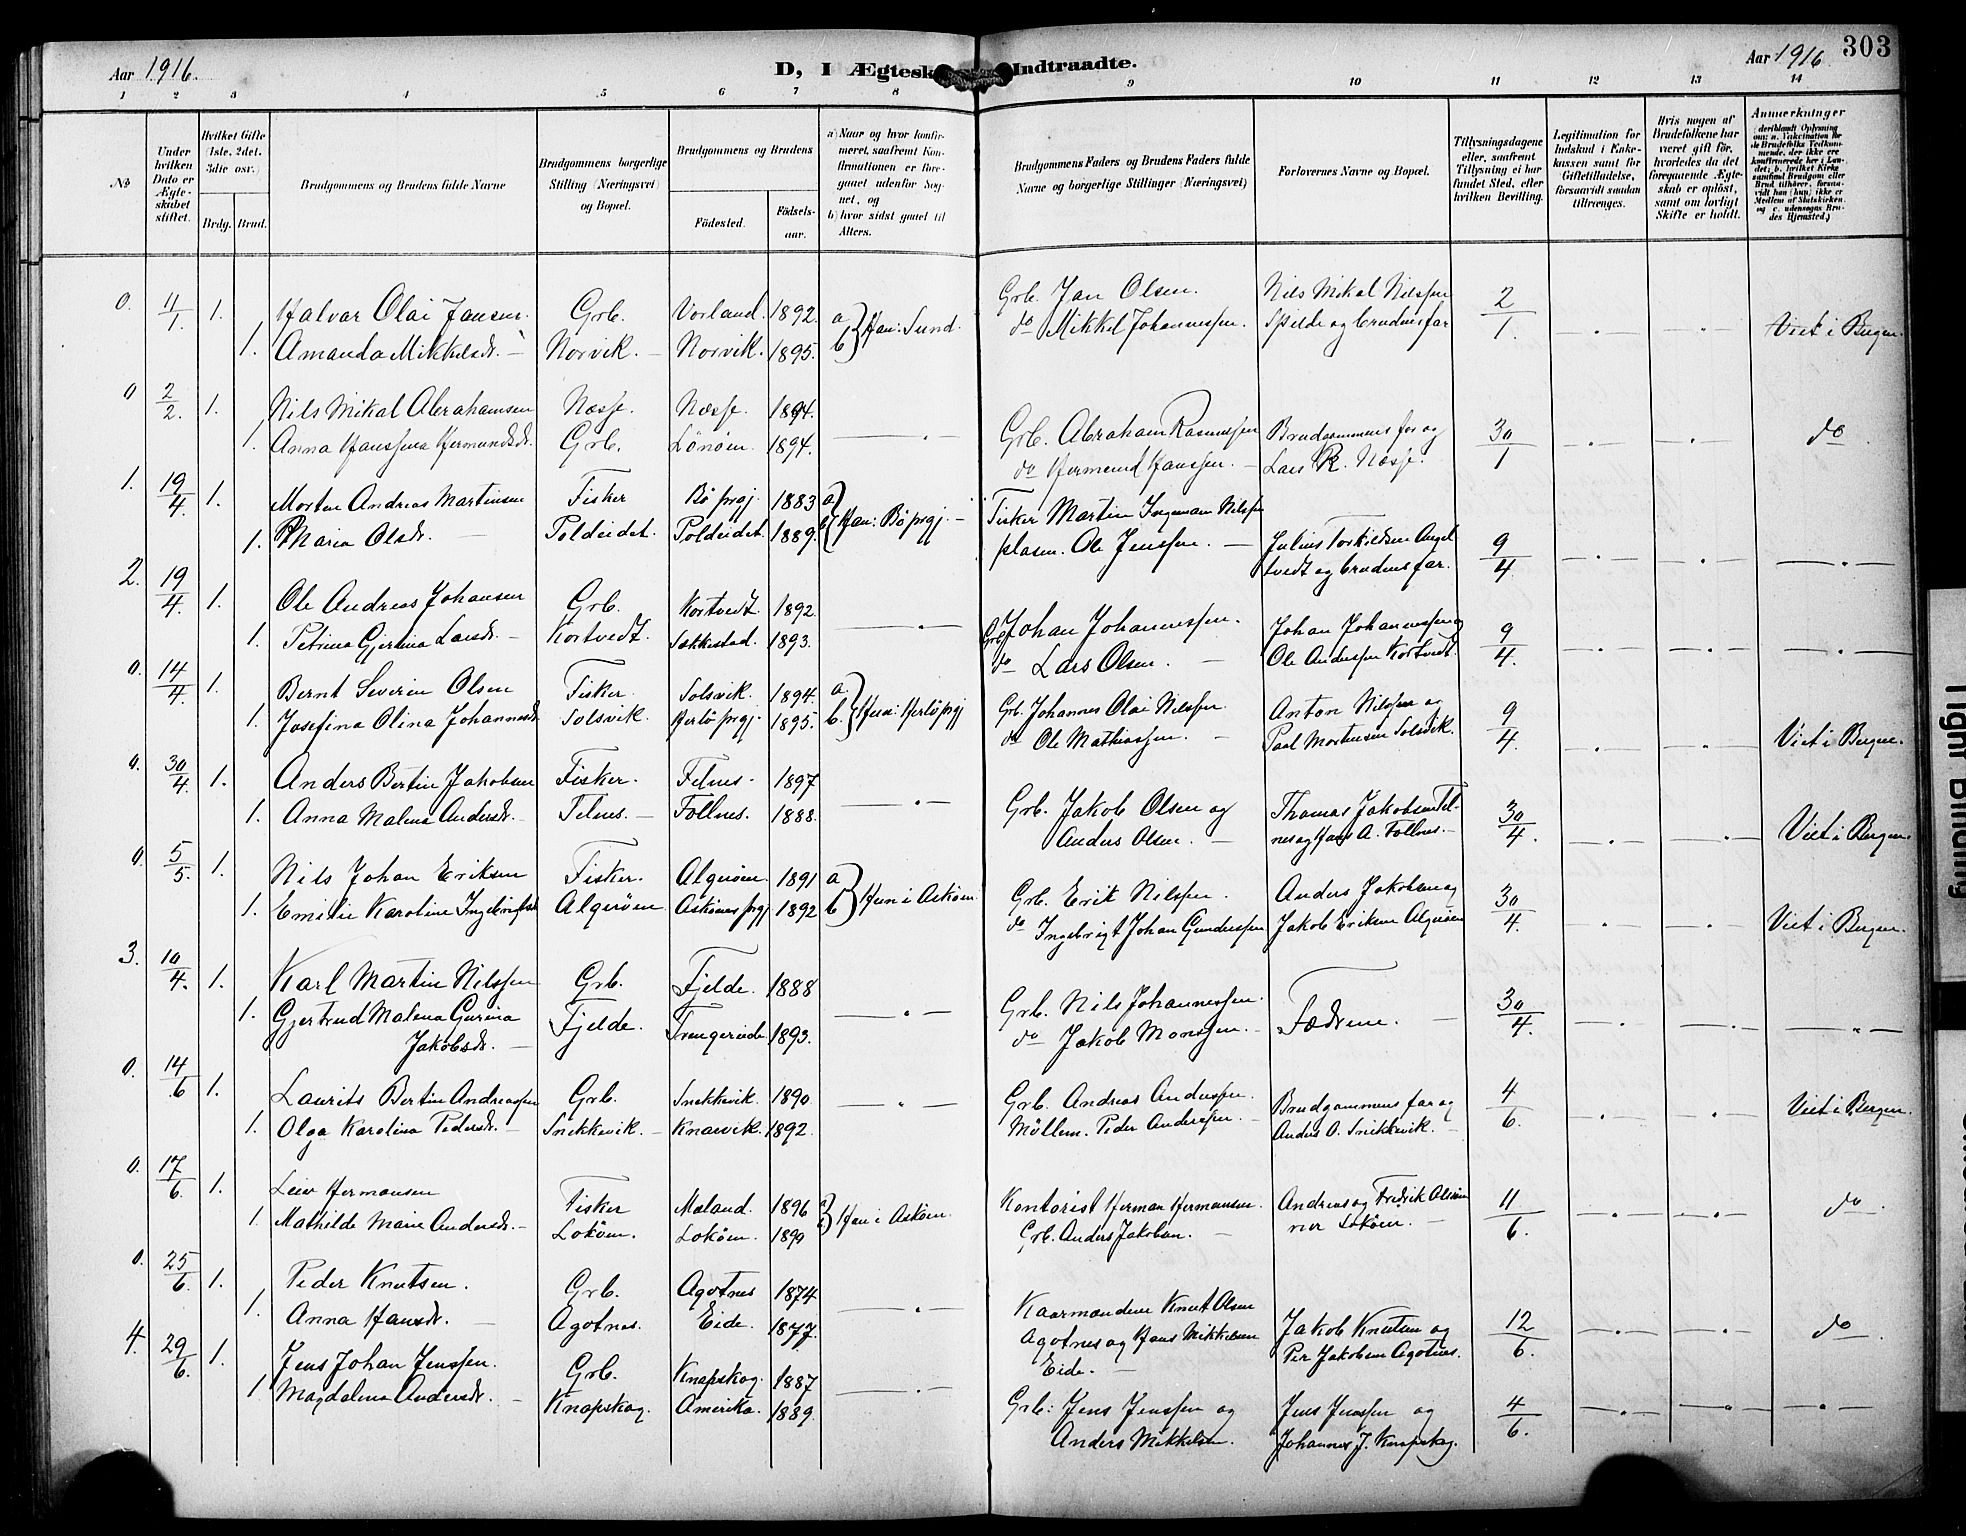 Aar 1916.
D, I Ægtesk Indtraadte.
Aar 1916. 303
1 2 3 4 5 6 7 8 9 10 11 12 13 14
No
Under hvilken Dato er Ægteskabet stiftet.
Hvilket Gifte (1ste, 2det, 3die osv.)
Brdg. Brud.
Brudgommens og Brudens fulde Navne
Brudgommens borgerlige Stilling (Næringsvei) og Bopæl.
Brudgommens og Brudens
Fødested.
Fødselsaar.
a) Naar og hvor konfirmeret, saafremt Konfirmationen er foregaaet udenfor Sognet, og
b) hvor sidst gaaet til Alters.
Brudgommens Faders og Brudens Faders fulde Navne og borgerlige Stillinger (Næringsvei)
Forlovernes Navne og Bopæl.
Tillysningsdagene eller, saafremt Tillysning ei har fundet Sted, efter hvilken Bevilling.
Legitimation for Indskud i Enkekassen samt for Giftetilladelse, forsaavidt saadan tiltrænges.
Hvis nogen af Brudefolkene har været gift før, hvorledes da det foregaaende Ægteskab er opløst, samt om lovligt Skifte er holdt.
Anmerkninger (deriblandt Oplysning om: a. Vakcination for de Brudefolks Vedkommende, der ikke ere konfirmerede her i Landet; b. hvilket Kirkesamfund Brudgom eller Brud tilhører, forsaavidt han (hun) ikke er Medlem af Statskirken, og c. udensogns Brudes Hjemsted.)
0. 4/1 1. Halvar Olai Jansen. Grb. Vorland. 1892. a Han: Sund. Grb. Jan Olsen. Nils Mikal Nilssen 2/1
1. Amanda Mikkelsdr. Norvik. Norvik. 1895. b do Mikkel Johannessen. Spilde og brudens far Viet i Bergen.
0 2/2. 1. Nils Mikal Abrahamsen Næsse. Næsse. 1894. Grb. Abraham Rasmussen Brudgommens far og 30/1 do
1. Anna Hanssina Hermundsdr. Grb. Lönöen. 1894. do Hermund Hanssen. Lars R. Næsse.
1. 19/4. 1. Morten Andreas Martinsen Fisker Bö prgj. 1883 a Han: Bö prgj. Fisker Martin Ingeman Nilssen
1. Maria Olsdr. Toldeidet. Toldeidet. 1889. b plasm. Ole Jenssen. Julius Torkildsen Angeltvedt og brudens far. 9/4.
2. 19/4. 1. Ole Andreas Johansen Grb. Kortvedt. 1892. Grb. Johan Johannessen. Johan Johannessen og 9/4.
1. Petrina Gjertina Larsdr. Kortvedt. Sækkestad. 1893. do Lars Olsen. Ole Anderssen Kortvedt.
0. 14/4 1. Bernt Severin Olsen Fisker. Solsvik. 1894. a. Hun: Herlö prgj Grb. Johannes Olai Nilssen. Anton Nilssen og 9/4.
1. Josefina Olina Johannesdr. Solsvik. Herlö prgj. 1895. b. do Ole Mathiassen. Paal Mortensen Solsvik. Viet i Bergen.
0. 30/4. 1. Anders Bertin Jakobsen Fisker. Telnes. 1897 Grb. Jakob Olsen og Thomas Jakobsen Tel- 30/4.
1. Anna Malena Andersdr. Telnes. Follnes. 1888. Anders Olsen. nes og Hans A. Follnes. Viet i Bergen.
0. 5/5. 1. Nils Johan Eriksen Fisker. Algeröen. 1891 a Hun i Asköen Grb. Erik Nilssen. Anders Jakobsen og 30/4.
1. Emilie Karoline Ingebrigtsdr. Algeröen Asköens prgj 1892 b do Ingebrigt Johan Gunderssen Jakob Eriksen Algeröen Viet i Bergen.
3. 10/4. 1. Karl Martin Nilssen Grb. Fjelde. 1888 Grb. Nils Johannessen. Fædrene. 30/4.
1. Gjertrud Malena Gurina Fjelde. Trengereide. 1893. do Jakob Monssen.
Jakobsdr.
0. 14/6 1. Laurits Bertin Andreassen Grb. Snekkevik. 1890 Grb. Andreas Anderssen. Brudgommens far og 4/6. Viet i Bergen.
1. Olga Karolina Pedersdr. Snekkevik. Knarvik. 1892. Möllem. Peder Anderssen. Anders O. Snekkevik.
0. 17/6. 1. Leiv Hermansen Fisker Moland. 1896 a Hun i Asköen. Kontorist Herman Hermansen. Andreas og Fredrik Olsen 11/6. do
1. Mathilde Marie Andersdr. Loköen. Loköen. 1899 b Grb. Anders Jakobsen. Loköen.
0. 25/6. 1. Peder Knutsen. Grb. Agotnes 1874 Kaarmændene Knut Olsen
1. Anna Hansdr. Agotnes. Eide. 1877. Agotnes og Hans Mikkelsen Jakob Knutsen og 12/6. do
Eide. Per Jakobsen Agotnes.
4. 29/6. 1. Jens Johan Jenssen. Grb. Knapskog. 1887
1. Magdalena Andersdr. Knapskog. Amerika. 1889. Grb: Jens Jenssen og Jens Jenssen og 4/6.
Anders Mikkelsen. Johannes J. Knapskog.